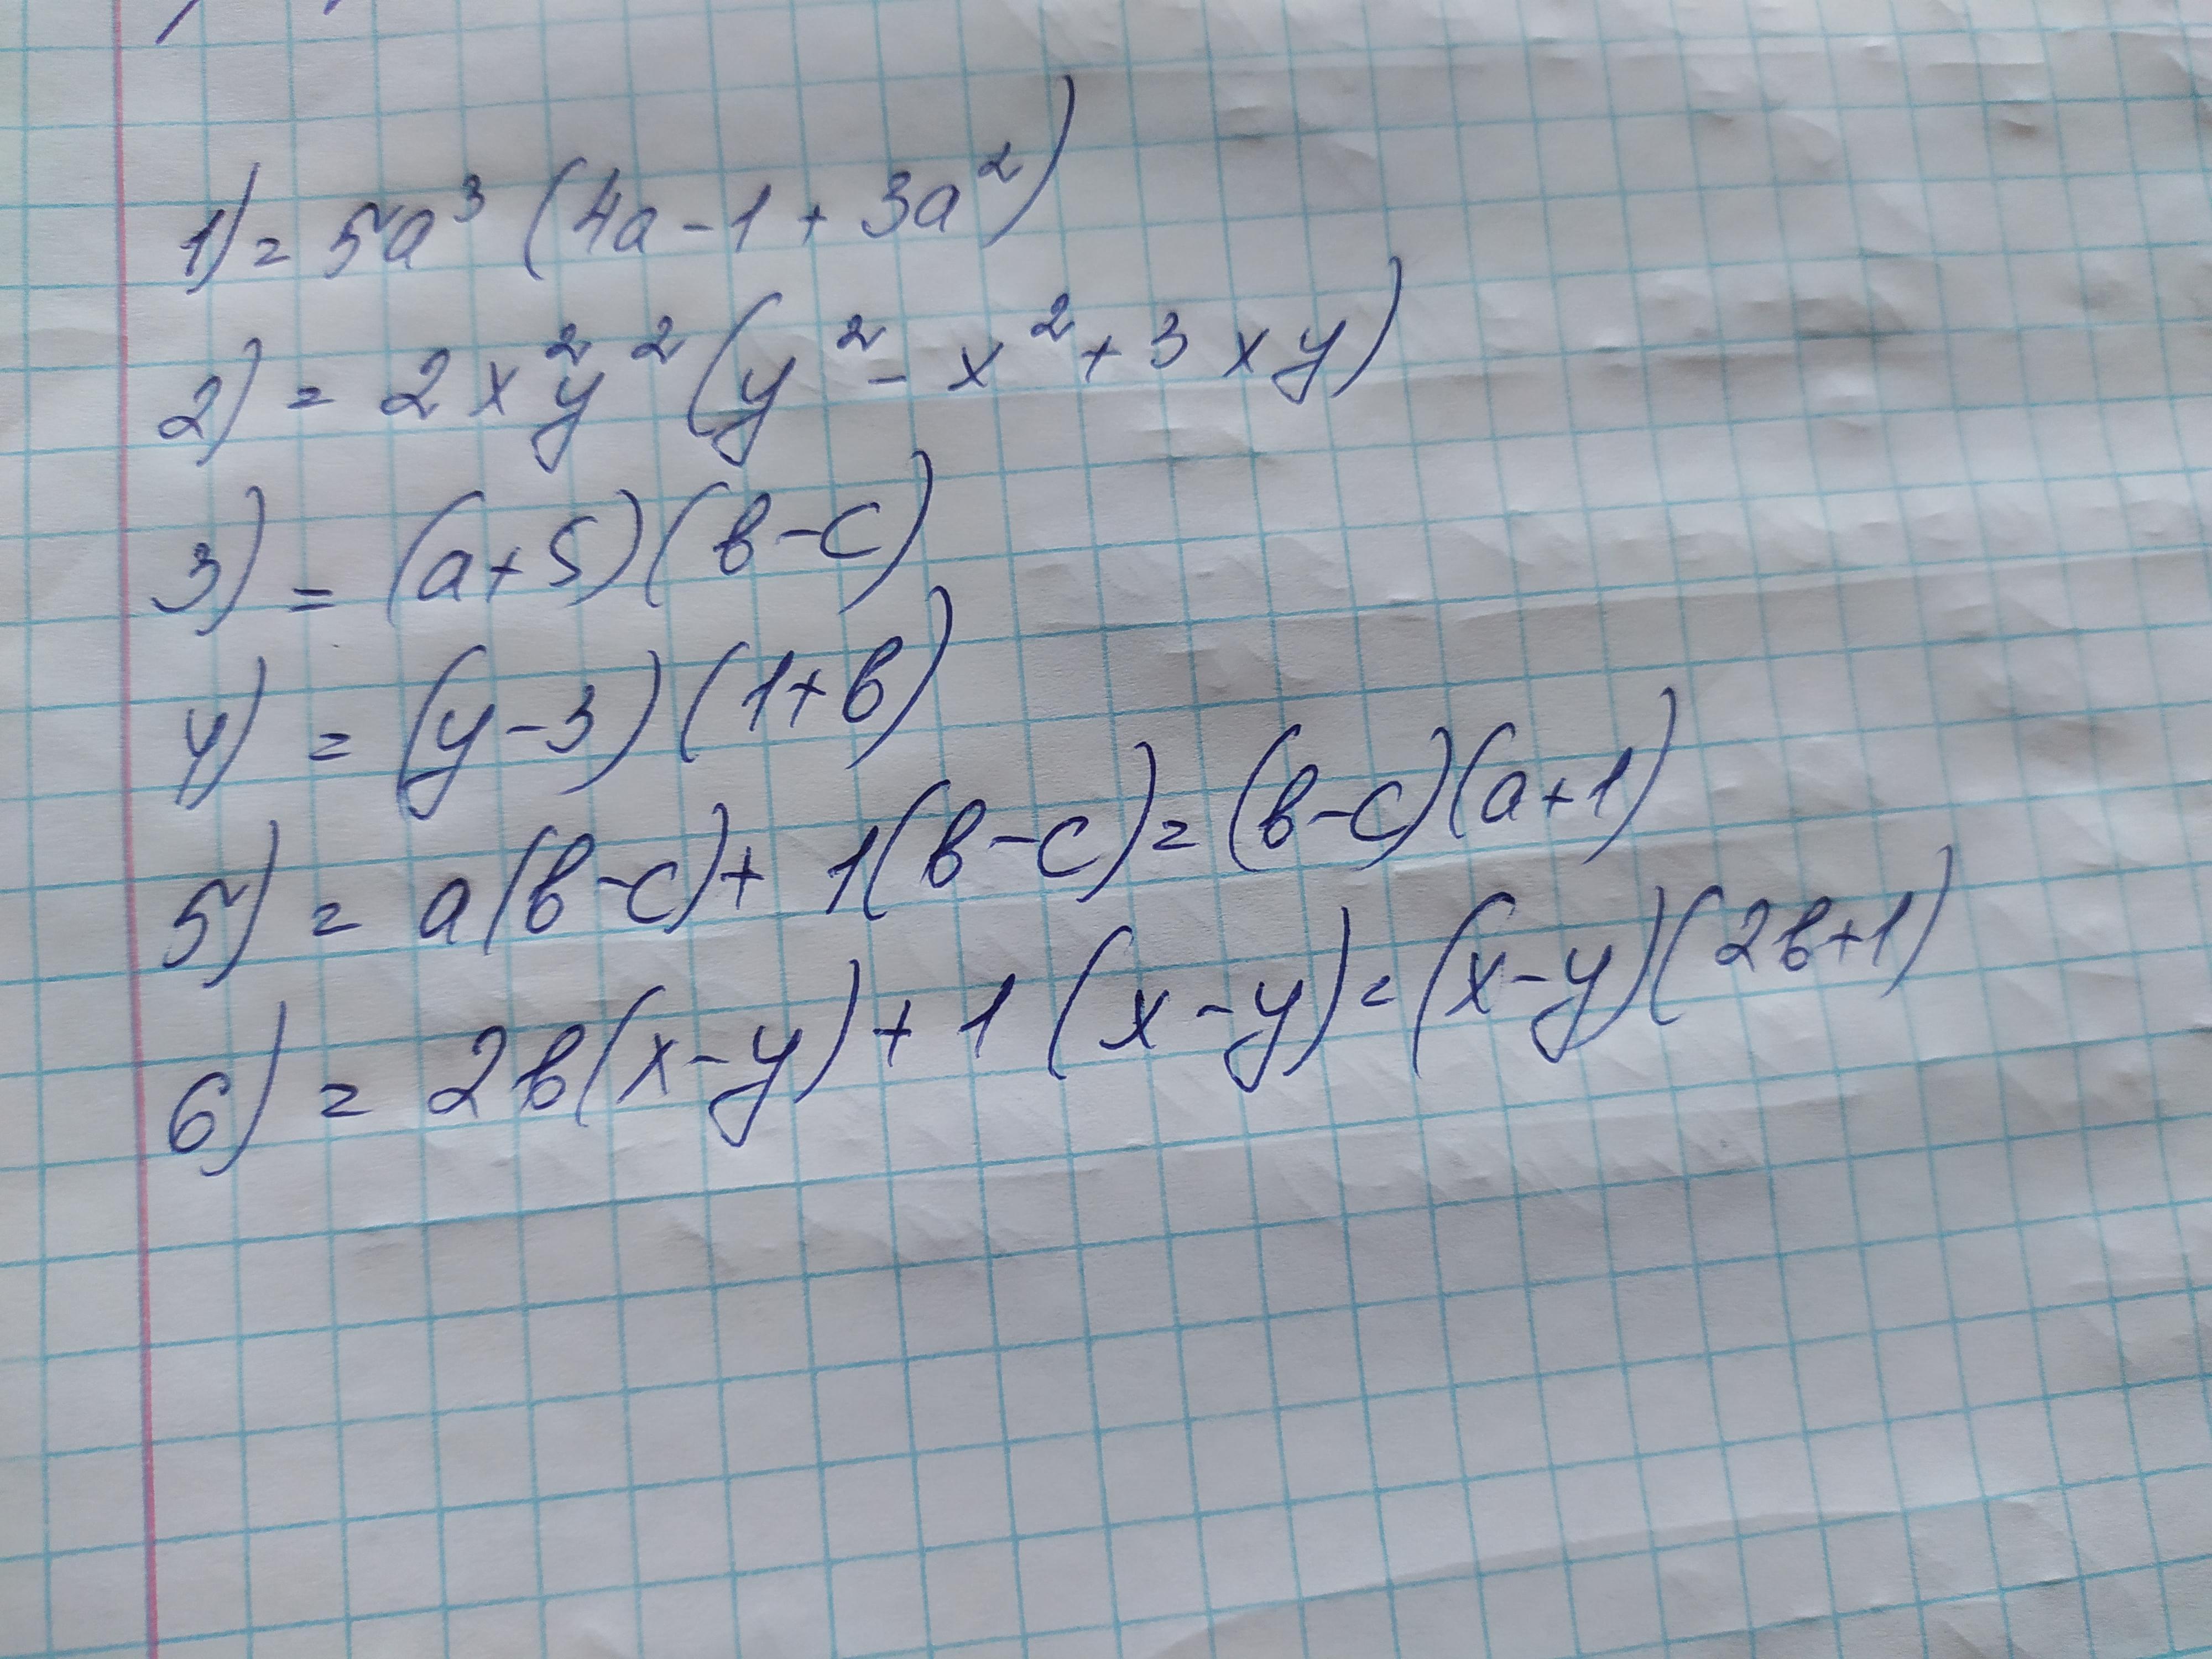 1) = 5a³ (4a - 1 + 3a²)
2) = 2x²y² (y² - x² + 3xy)
3) = (a+5)(b-c)
4) = (y-3)(1+b)
5) = a(b-c) + 1(b-c) = (b-c)(a+1)
6) = 2b(x-y) + 1(x-y) = (x-y)(2b+1)